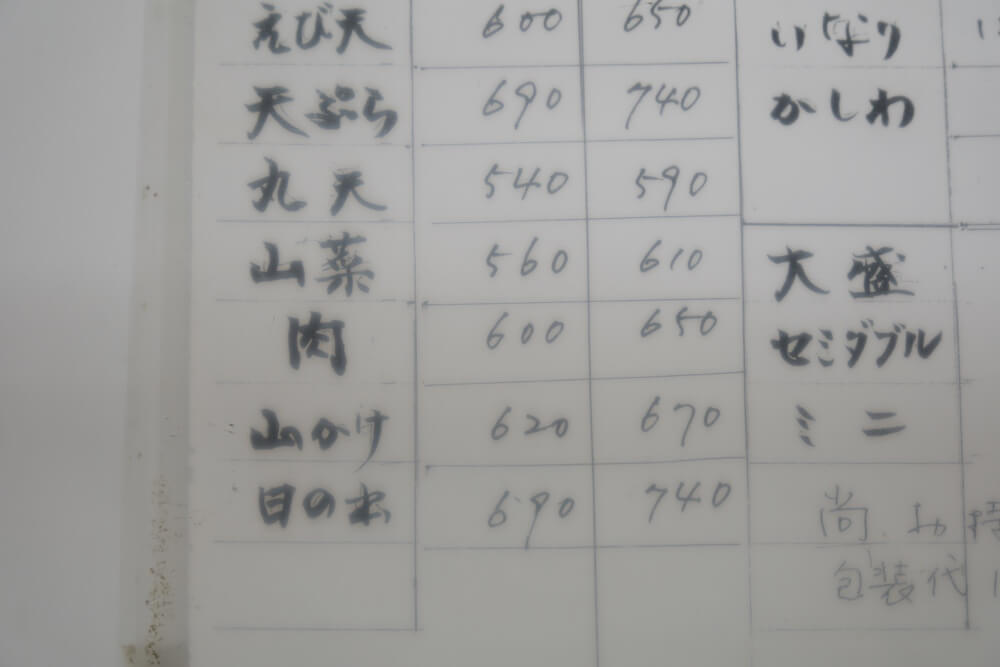 えび天 600 650 いなり
天ぷら 690 740 かしわ
丸天 540 590
山菜 560 610 大盛
肉 600 650 セミダブル
山かけ 620 670 ミニ
日の出 690 740
尚、お持
包装代